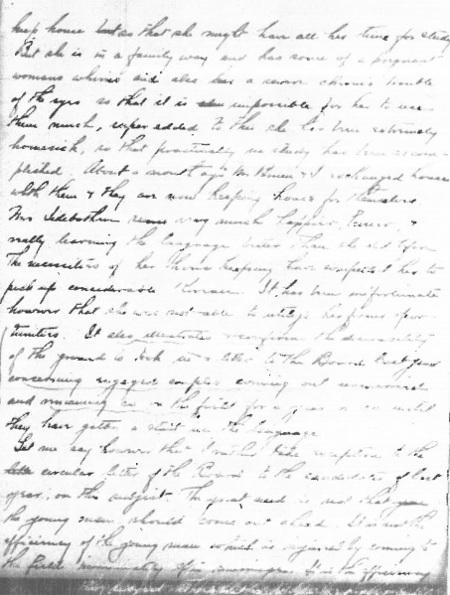 keep house so that she might have all her time for study
But she is in a family way and has some of a pregnant
womans whims and also has a severe chronic trouble
of the eyes so that it is impossible for her to use
them much, super added to this she has been extremely
homesick, so that practically no study has been accom-
plished. About a month ago Mr. & I exchanged houses
with them & they are now keeping house for themselves
Mrs Sidebotham seems very much happier, &
really learning the language better than she did before
The necessities of her house keeping have compelled her to
pick up considerable Korean. It has been unfortunate
however that she was not able to utilize her former oppor-
tunities. It also illustrates the desirability
of the ground I took in a letter to the Board last year
concerning engaged couples coming out unmarried
and remaining on the field for a year or so until
they have gotten a start in the language
Let me say however that I rather take exception to the
circular letter of the Board to the candidates of last
year, on this subject. The great need is not that
the young man should come out ahead. It is not the
efficiency of the young man which is injured by coming to
the field immediately It is the efficiency